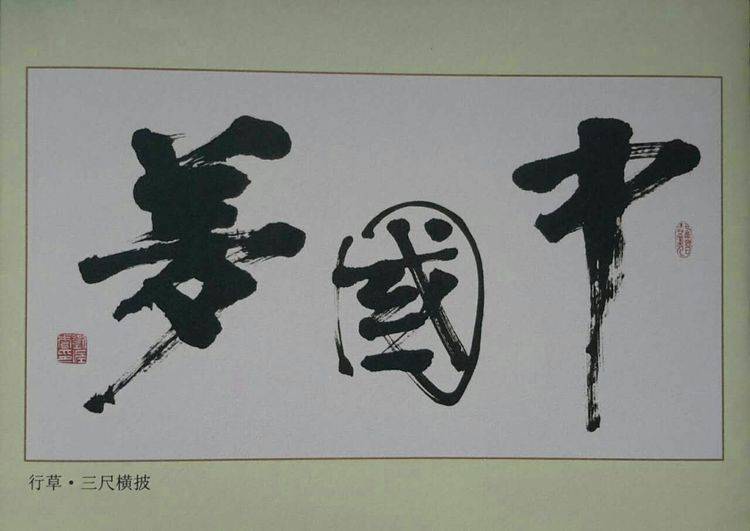 中國夢
行草·三尺横披